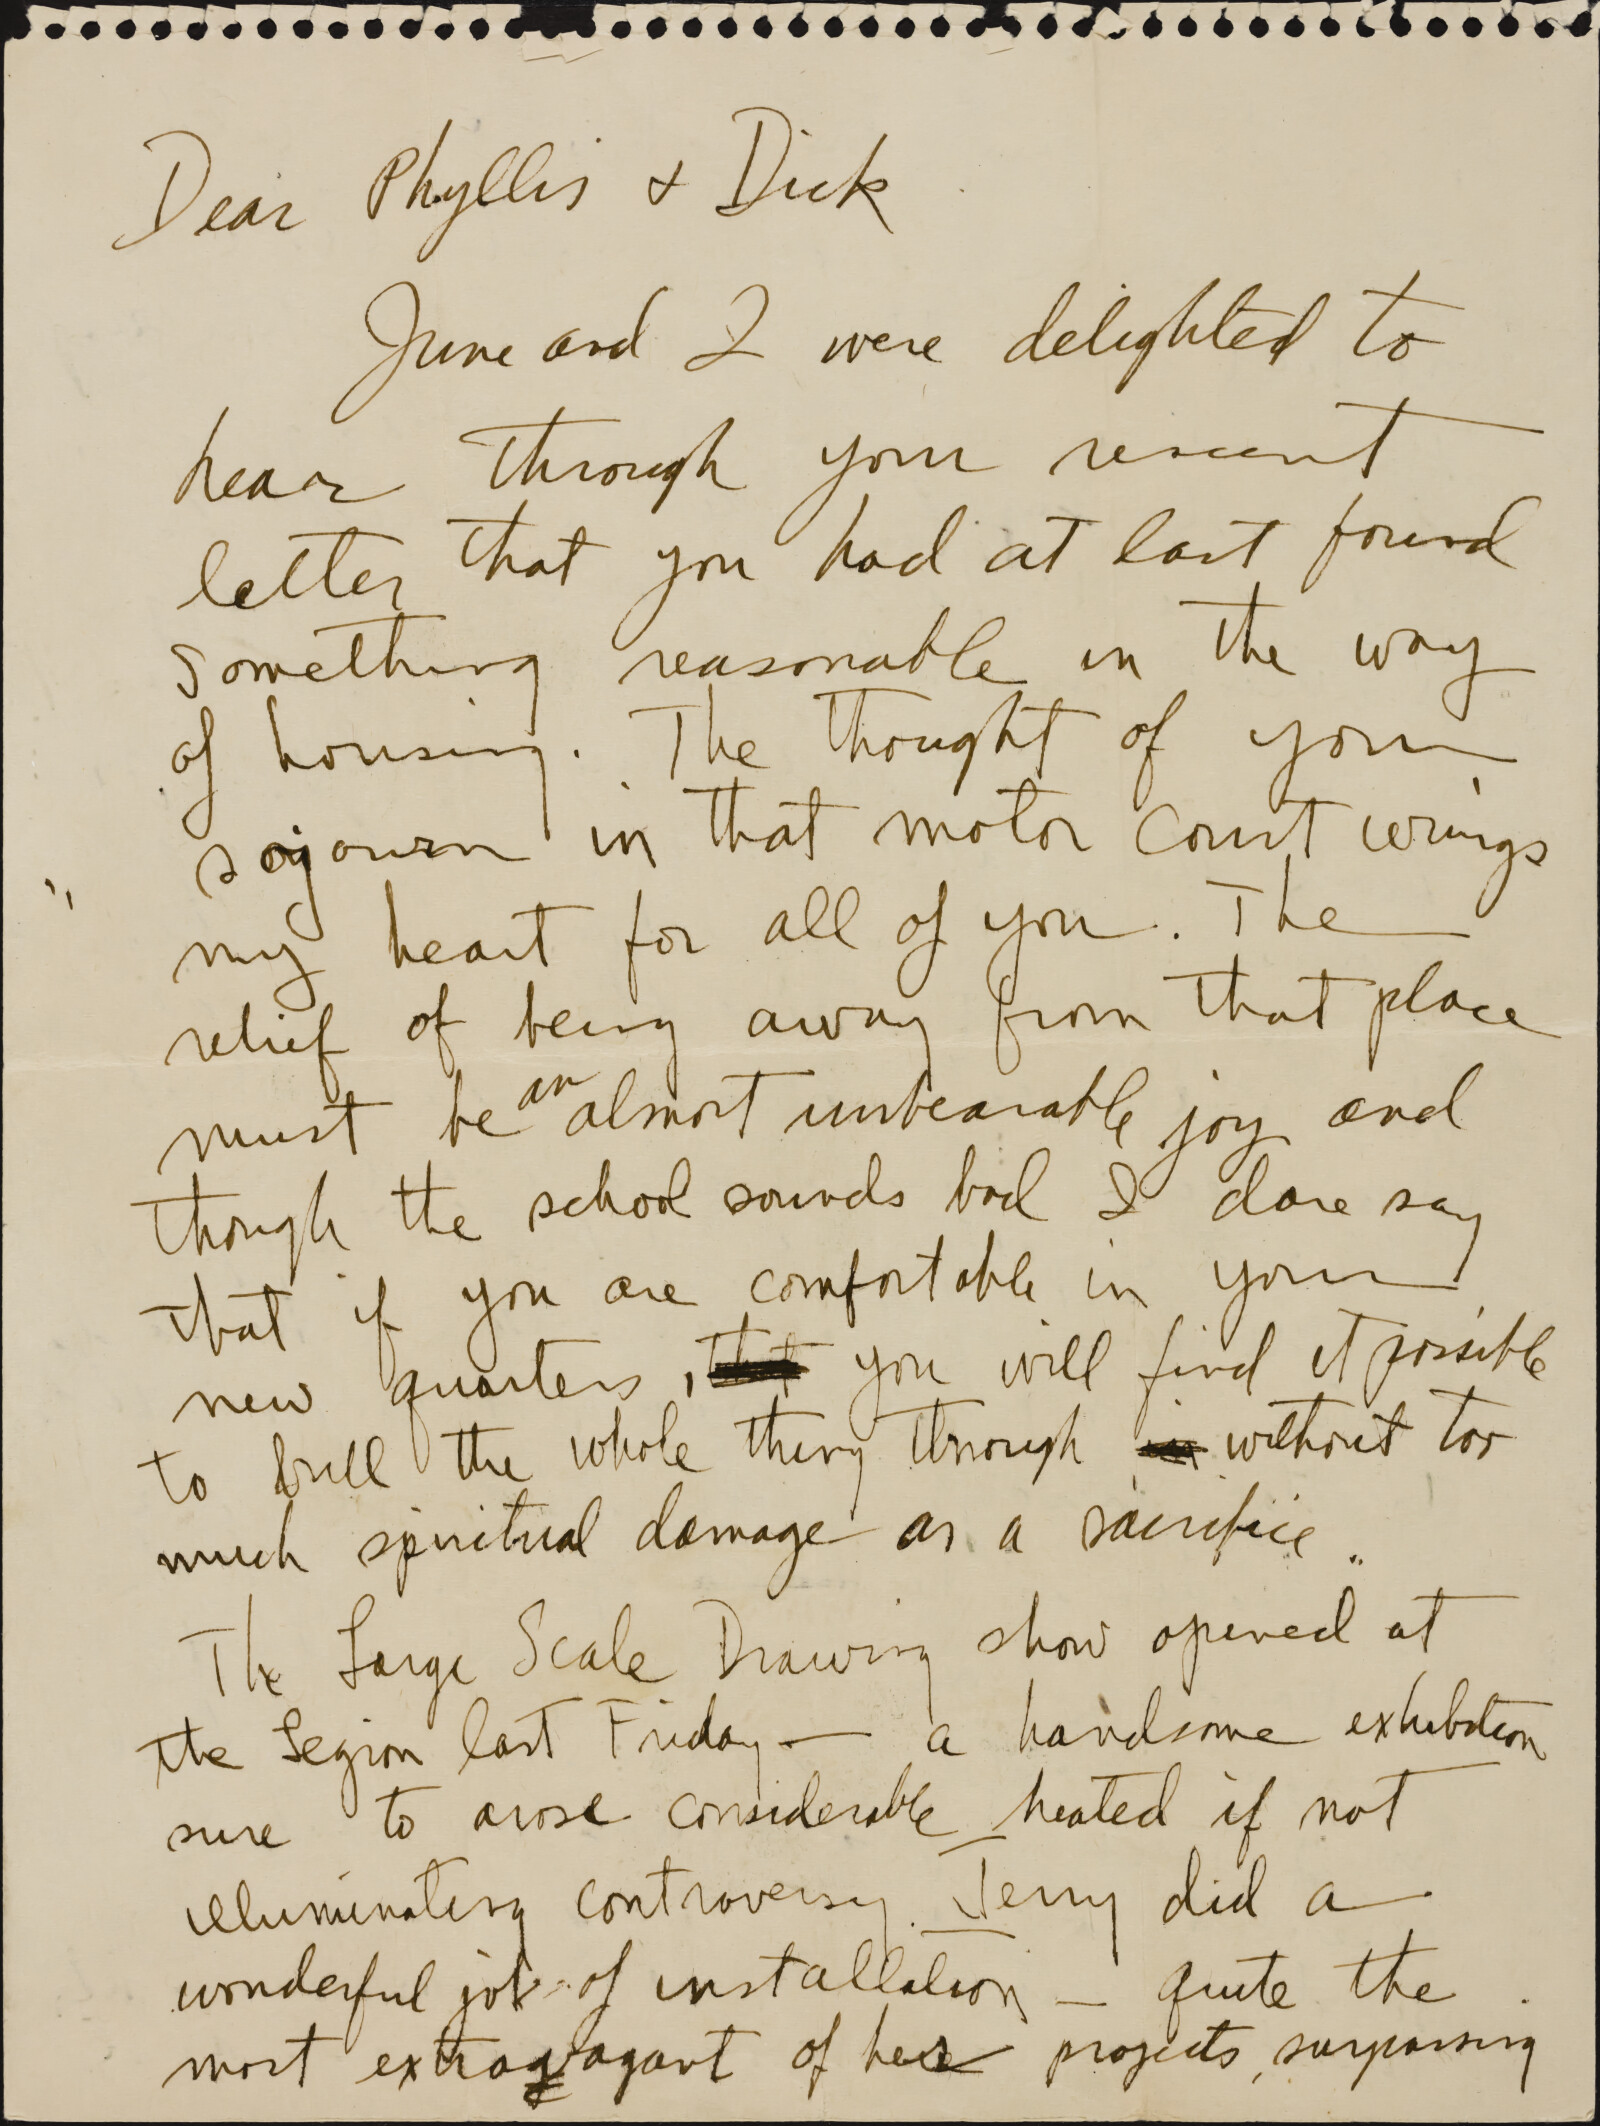 Dear Phyllis + Dick
June and I were delighted to
hear through your rescent
letter that you had at last found
something reasonable in the way
of housing. The thought of your
sojourn in that motor court wrings
my heart for all of you. The
relief of being away from that place
must be an almost unbearable joy and
though the school sounds bad I dare say
that if you are comfortable in your
new quarters, that you will find it possible
to bull the whole thing through in without too
much spiritual damage as a sacrifice.
The Large Scale Drawing show opened at
the Legion last Friday — a handsome exhibition
sure to arose considerable heated if not
illuminating controversy. Jerry did a
wonderful job of installation — quite the
most extravagant of her projects, surpassing